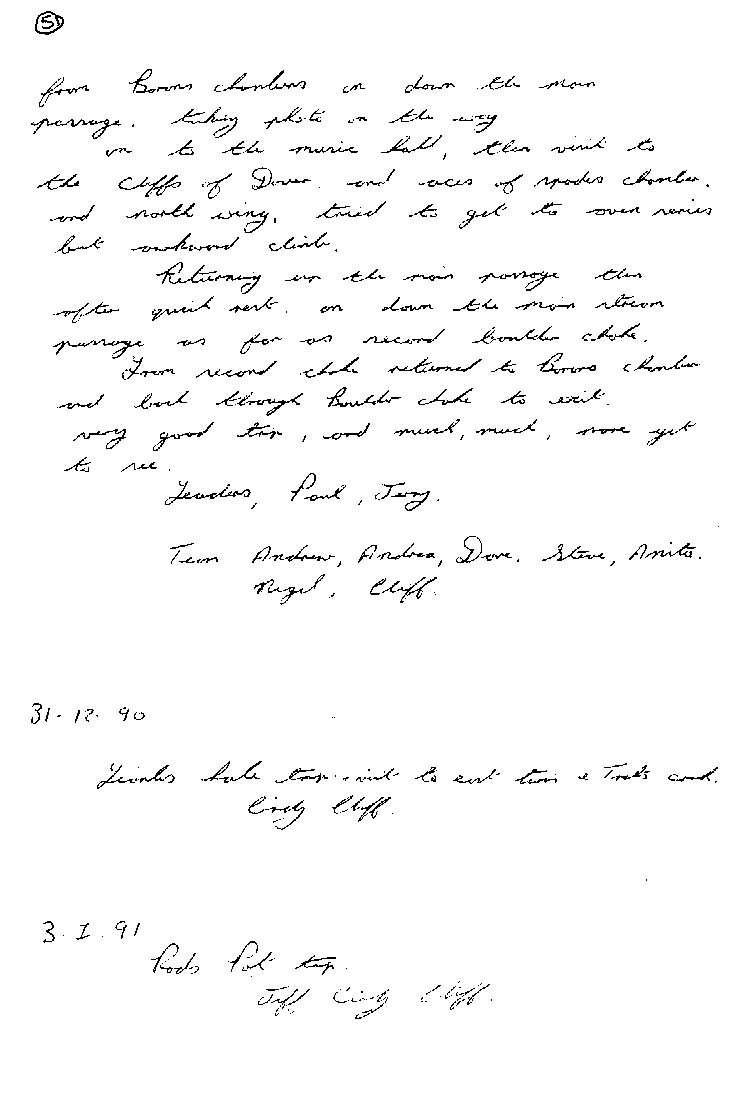 5
from Barons chambers on down the main
passage. taking photo on the way
on to the music hall, then visit to
the Cliffs of Dover. and aces of spades chamber.
and north wing. tried to get to seven
but awkward climb.
Returning up the main passage then
after quick rest. on down the main stream
passage as far as record boulder choke.
From record choke returned to Barons chamber
and back through Boulder choke to exit.
very good trip, and much, much, more yet
to see.
Leaders, Paul,
Team Andrew, Andrea, Dave. Steve, Anita.
Nigel, Cliff.
31-12-90
hole trip. visit to east twin
Cindy Cliff.
3.1.91
Rods Pot trip.
Jeff Cindy Cliff.